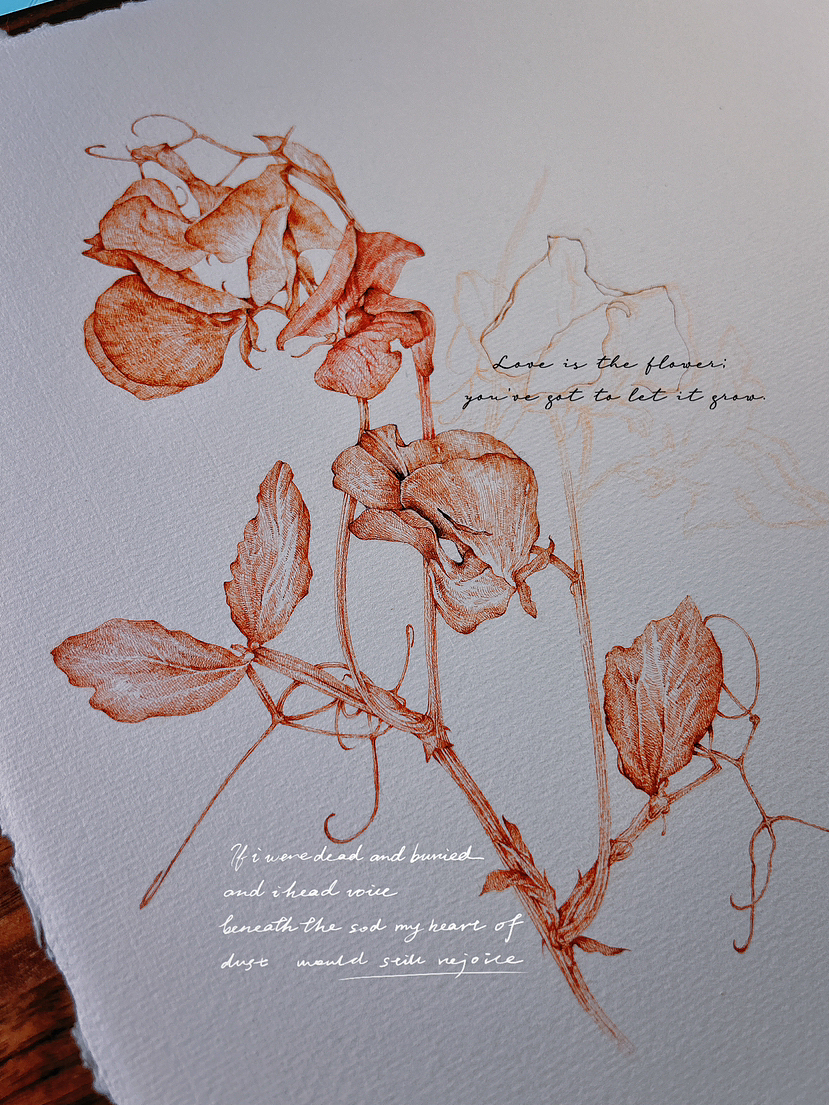 Love is the flower;
you've got to let it grow.
If i were dead and buried
and i head voice
beneath the sod my heart of
dust would still rejoice